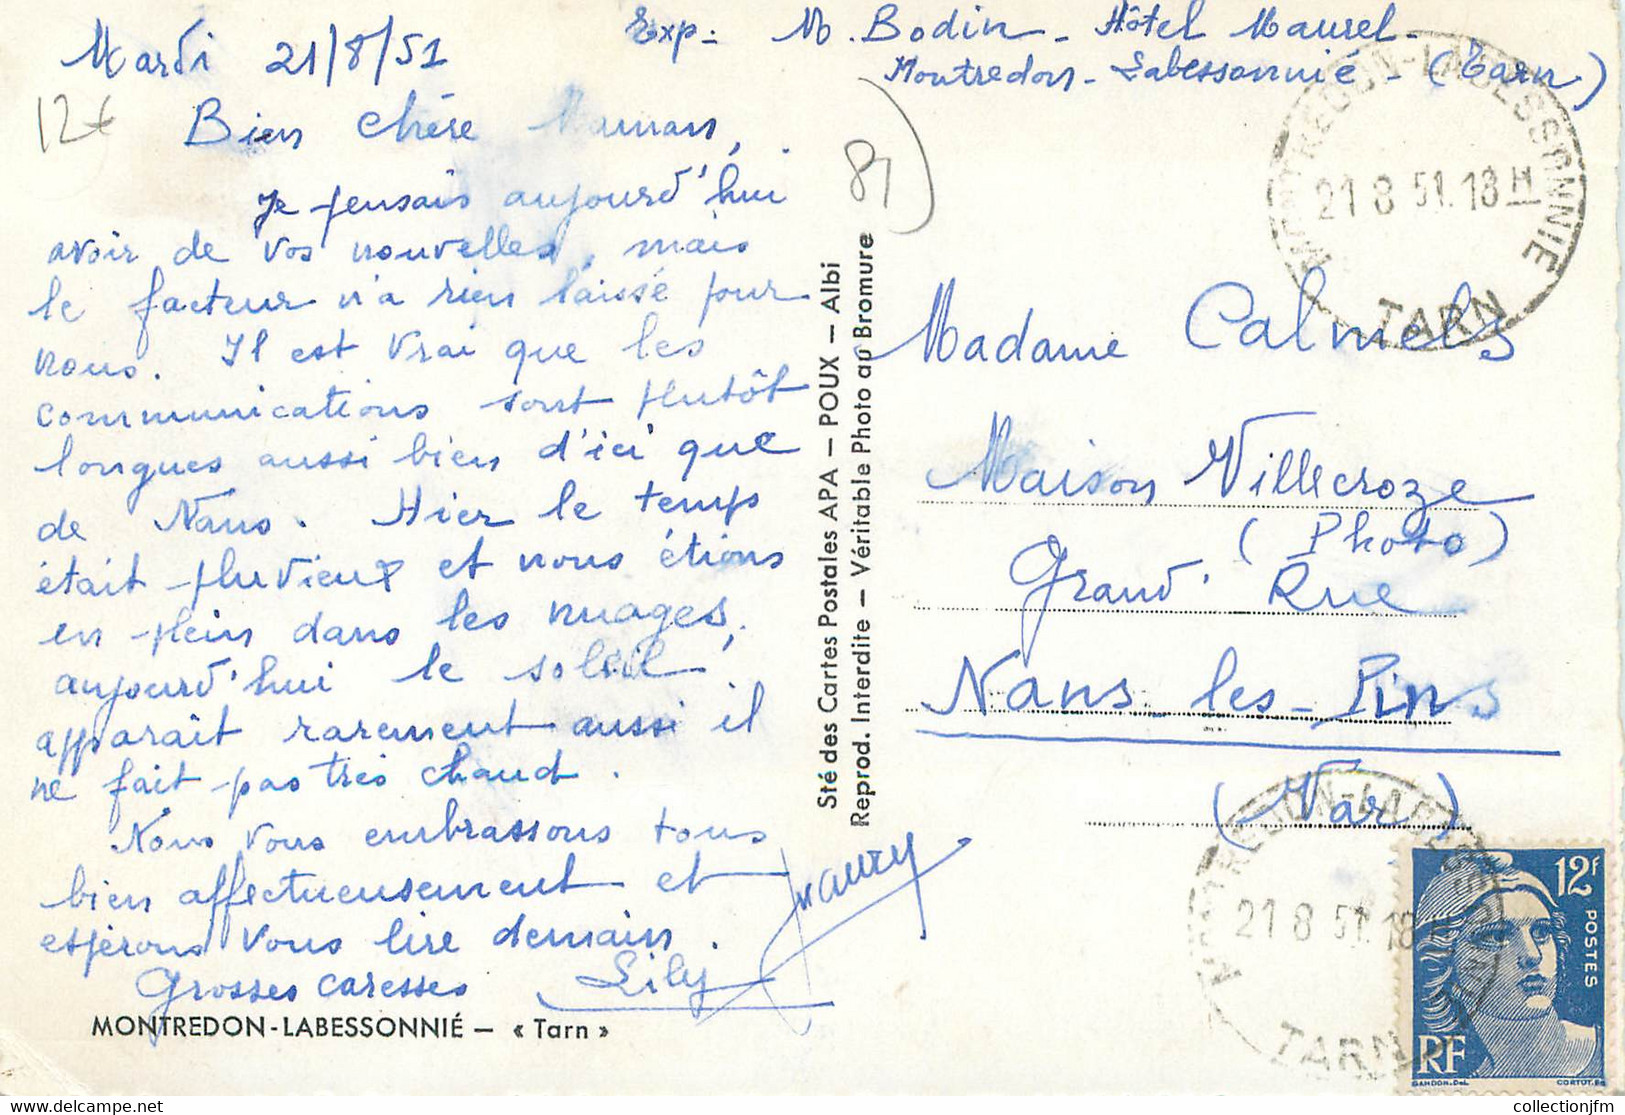 Exp : M. Bodin - Hôtel Maurel -
Montredon - Labessonnié - (Tarn)
Mardi 21/8/51
12€
Bien chère Maman,
Je pensais aujourd'hui
avoir de vos nouvelles, mais
le facteur n'a rien laissé pour
nous. Il est vrai que les
communications sont plutôt
longues aussi bien d'ici que
de Nans. Hier le temps
était pluvieux et nous étions
en plein dans les nuages,
aujourd'hui le soleil
apparaît rarement aussi il
ne fait pas très chaud.
Nous vous embrassons tous
bien affectueusement et
espérons vous lire demain.
Grosses caresses Lily
MONTREDON-LABESSONNIÉ — « Tarn »
81
Sté des Cartes Postales APA — POUX — Albi
Reprod. Interdite — Véritable Photo au Bromure
MONTREDON-LABESSONNIE
21 8 51. 18 H
TARN
Madame Calmels
Maison Villecroze
(Photo)
Grand' Rue
Nans-les-Pins
(Var)
MONTREDON-LABESSONNIE
21 8 51. 18 H
TARN
12F
POSTES
RF
GANDON.Del.
CORTOT.Sc
collectionjfm